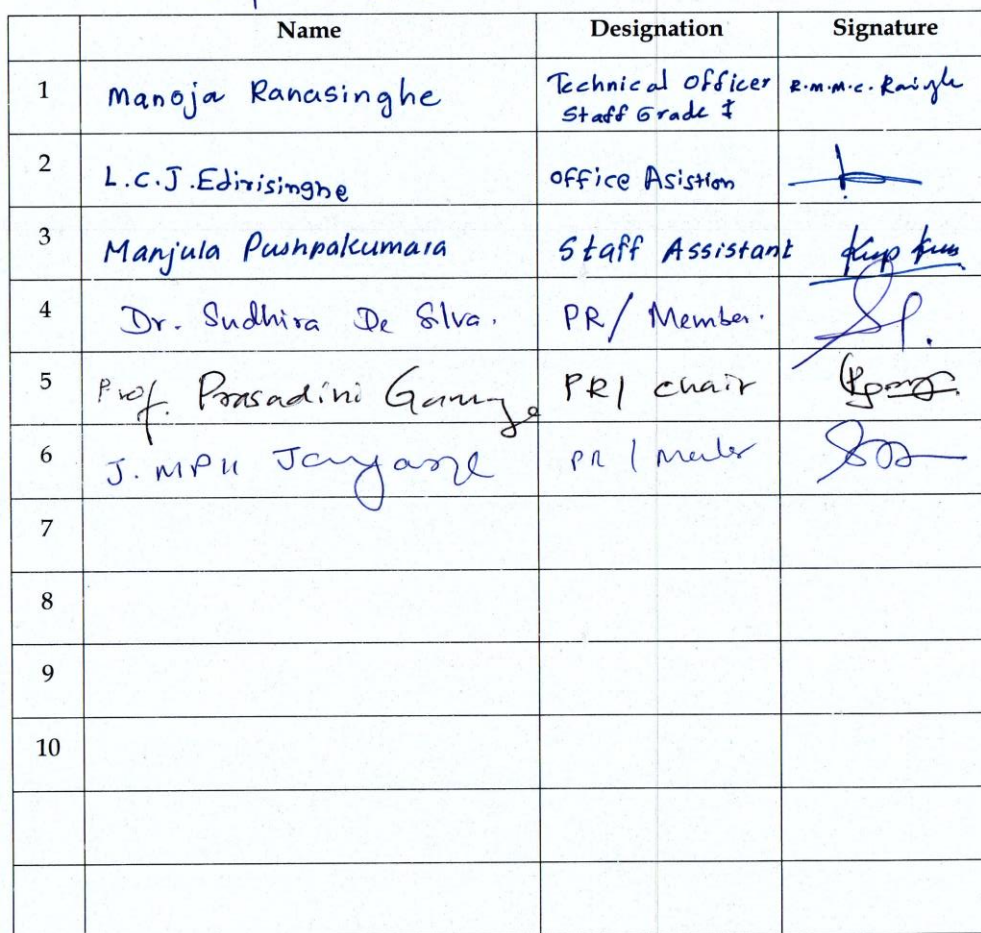 Name Designation Signature
1 Manoja Ranasinghe Technical officer R.m.m.c.
Staff Grade I
2 L.C.J.Edirisinghe office Asistion
3 Manjula Pushpakumara Staff Assistant
4 Dr. Sudhira De Silva. PR/ Member.
5 Prof. Prasadini PR/ chair
6 J. MPU PR /
7
8
9
10